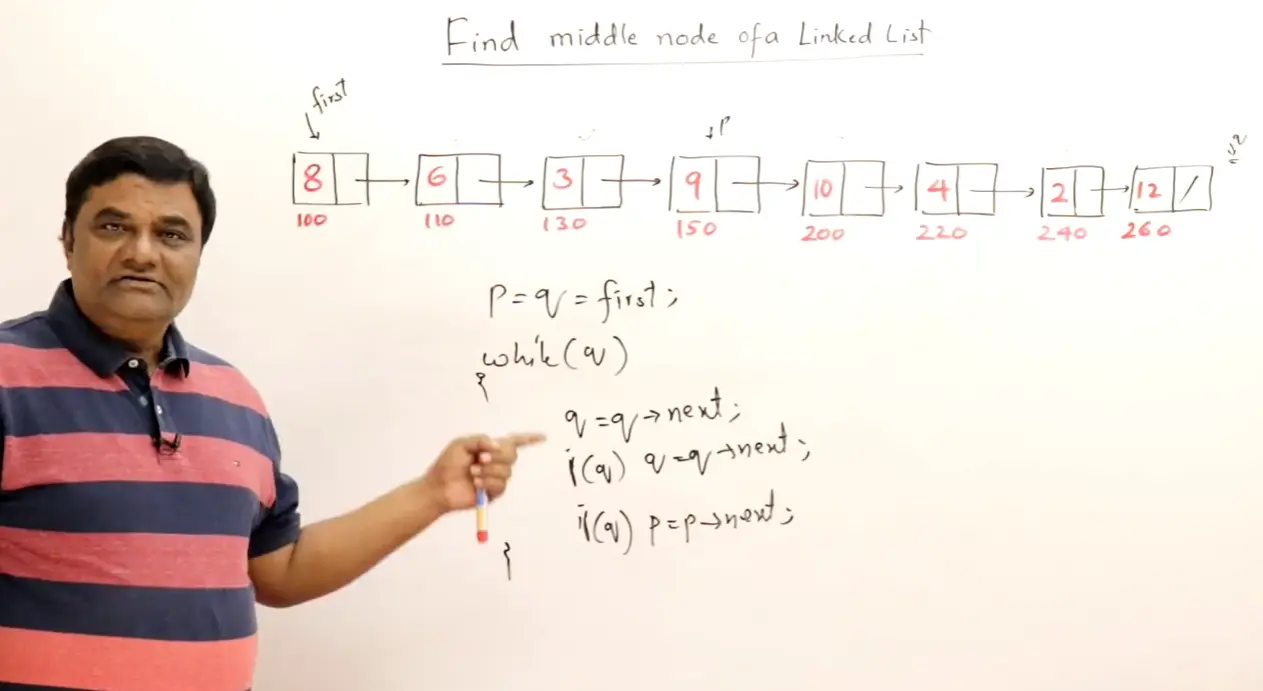 Find middle node of a Linked List
first
P
q
8 6 3 9 10 4 2 12 /
100 110 130 150 200 220 240 260
P = q = first;
while(q)
{
q = q→next;
if(q) q = q→next;
if(q) p = p→next;
}